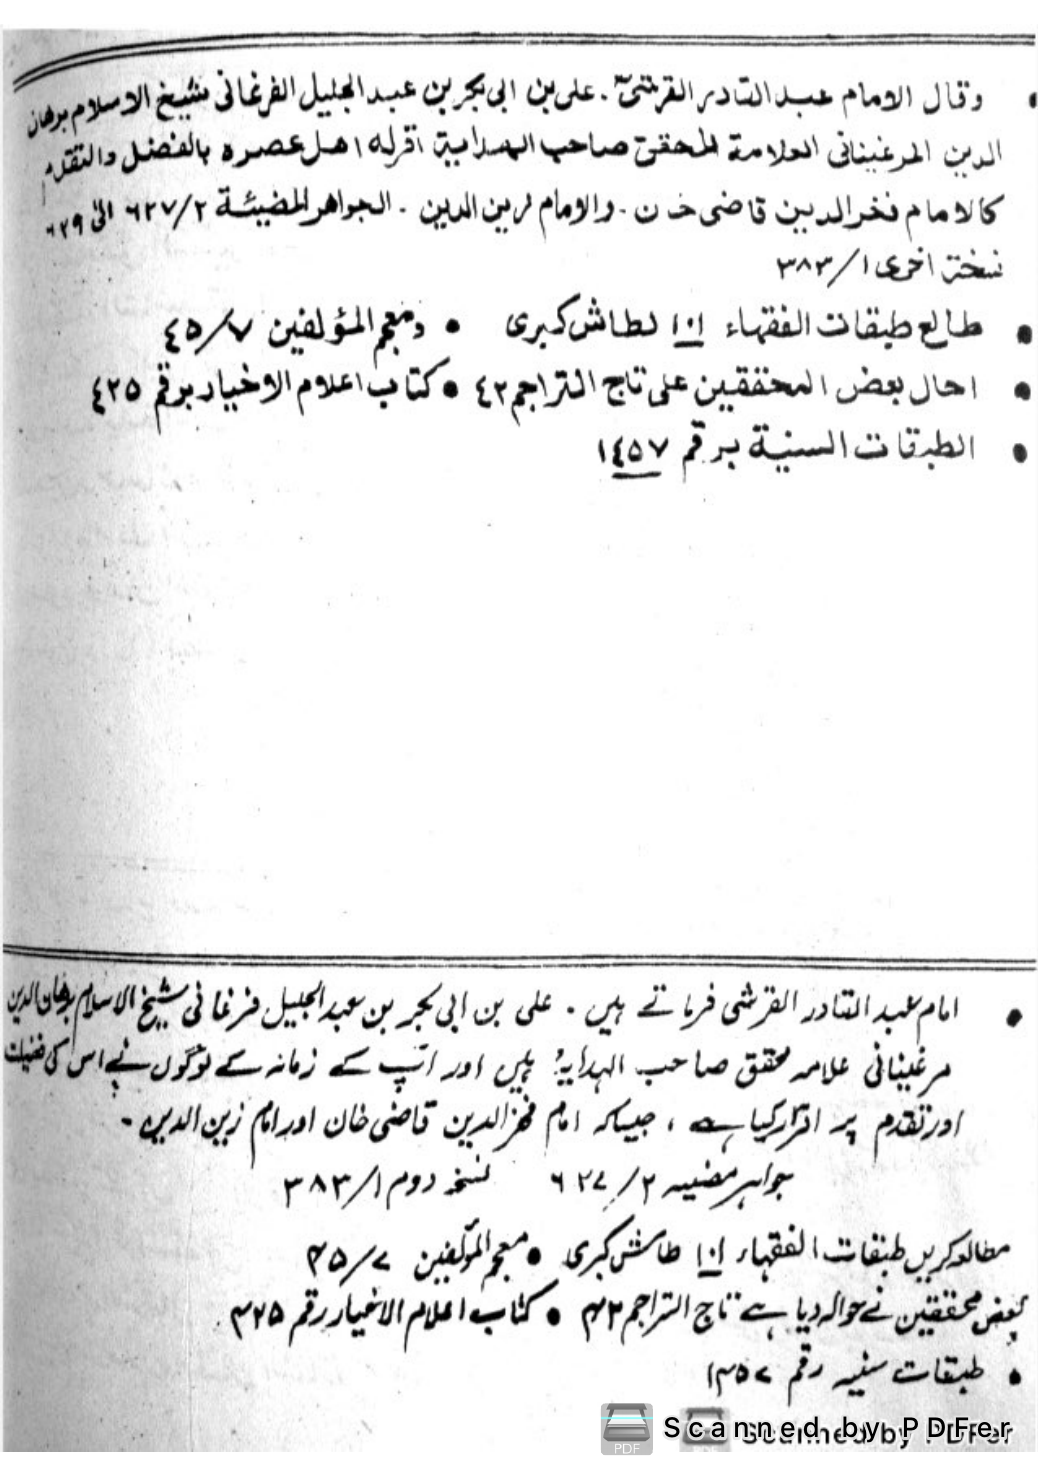 • وقال الامام عبد القادر القرشیؒ ۔ علی بن ابی بکر بن عبد الجلیل الفرغانی شیخ الاسلام برهان
الدین المرغینانی العلامة المحقق صاحب الهدایة اقرله اهل عصره بالفضل والتقدم
کالامام فخر الدین قاضی خان ۔ والامام زین الدین ۔ الجواهر المضیئة ٢/ ٦٢٧ الی ٦٢٩
نسخة اخری ١/ ٣٨٣
• طالع طبقات الفقهاء ١٠١ لطاش کبری • ومعجم المؤلفین ٧/ ٤٥
• احال بعض المحققین علی تاج التراجم ٤٢ • کتاب اعلام الاخیار برقم ٤٢٥
• الطبقات السنیة برقم ١٤٥٧
• امام عبد القادر القرشی فرماتے ہیں ۔ علی بن ابی بکر بن عبد الجلیل فرغانی شیخ الاسلام برھان الدین
مرغینانی علامہ محقق صاحب الہدایہ ہیں اور آپ کے زمانہ کے لوگوں نے اس کی فضیلت
اور تقدم پر اقرار کیا ہے ، جیسا کہ امام فخر الدین قاضی خان اور امام زین الدین ۔
جواہر مضیہ ۲/ ۶۲۷ نسخہ دوم ۱/ ۳۸۳
مطالعہ کریں طبقات الفقہاء ۱۰۱ طاش کبری • معجم المؤلفین ۷/ ۴۵
بعض محققین نے حوالہ دیا ہے تاج التراجم ۴۲ • کتاب اعلام الاخیار رقم ۴۲۵
• طبقات سنیہ رقم ۱۴۵۷
Scanned by PDFer
Scanned by PDFer
PDF